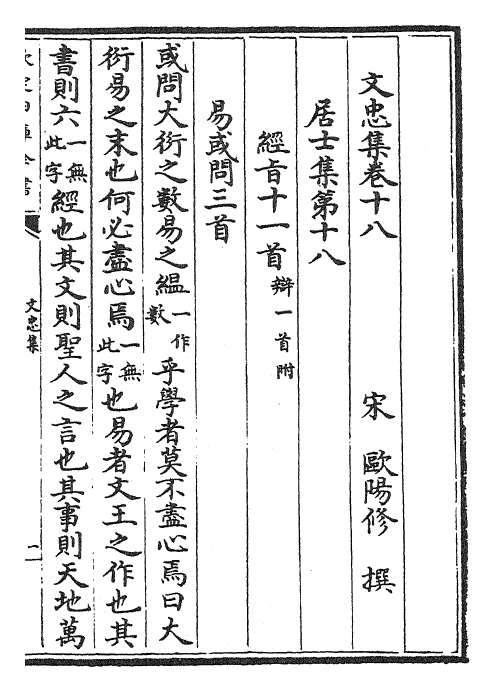 文忠集卷十八
宋 歐陽修 撰
居士集第十八
經旨十一首辯一首附
易或問三首
或問大衍之數易之緼一作數乎學者莫不盡心焉曰大
衍易之末也何必盡心焉一無此字也易者文王之作也其
書則六一無此字經也其文則聖人之言也其事則天地萬
文忠集
一